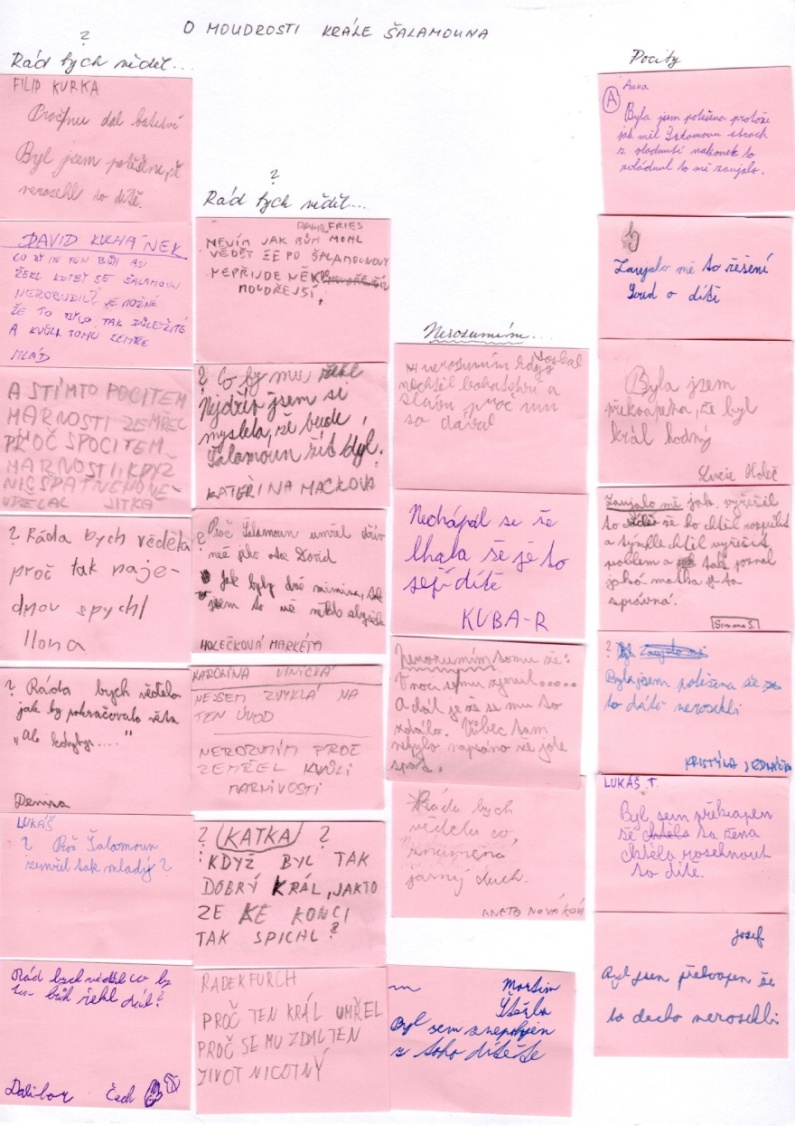 O MOUDROSTI KRÁLE ŠALAMOUNA
?
Rád bych věděl...
FILIP KURKA
Proč mu dal
Byl jsem potěšen, že
nerosekl to dítě.
DAVID KUCHÁNEK
CO BY MU TEN BŮH ASI
ŘEKL KDYBY SE ŠALAMOUN
NEROZHODIL? JE MOŽNÉ
ŽE TO BYLO TAK DŮLEŽITÉ
A KVŮLI TOMU ZEMŘE
MLÁD
A S TÍMTO POCITEM
MARNOSTI ZEMŘEL
PROČ S POCITEM
MARNOSTI, KDYŽ
NIC ŠPATNEHO NE-
UDELAL JITKA
? Ráda bych věděla
proč tak naje-
dnou spychl
Ilona
? Ráda bych věděla
jak by pokračovala věta
"Ale kdyby...."
Denisa
LUKÁŠ
? Proč Šalamoun
zemřel tak mladý?
Rád bych věděl co by
ten bůh řekl dál?
Dalibor Čech
?
Rád bych věděl...
DAVID FRIES
NEVÍM JAK BŮH MOHL
VĚDĚT ŽE PO ŠALAMOUNOVY
NEPŘIJDE NĚK
MOUDŘEJŠÍ.
? Co by mu řekl
Nejdřív jsem si
myslela, že bude
Šalamoun žít dýl.
KATEŘINA MACKOVÁ
? Proč Šalamoun umřel dřív
než jeho otec David
Jak byly dvě mimina, tak
jsem to už někde slyšela
HOLEČKOVÁ MARKÉTA
KAROLINA VINICKÁ
NEJSEM ZVYKLÁ NA
TEN ÚVOD
NEROZUMÍM PROČ
ZEMŘEL KVŮLI
MARNIVOSTI
? KATKA ?
KDYŽ BYL TAK
DOBRÝ KRÁL, JAKTO
ZE KE KONCI
TAK SPICHL?
RADEK FURCH
PROČ TEN KRÁL UMŘEL
PROČ SE MU ZDÁL TEN
ŽIVOT NICOTNÝ
Nerozumím...
nerozumím když
nechtěl bohatství a
slávu proč mu
to dával
Nechápal se že
lhala že je to
její dítě
KUBA-R
Nerozumím tomu že:
V noci se mu zjevil.....
A dál je že se mu to
zdálo. Vůbec tam
nebylo napsáno že jde
spát.
Ráda bych
věděla co,
znamená
jasný duch.
ANETA NOVÁKOVÁ
Martin
Byl sem znepokojen
z toho dítěte
Pocity
A Anna
Byla jsem potěšena protože
jak měl Šalamoun strach
z vládnutí nakonec to
zvládnul to mě zaujalo.
Zaujalo mě to řešení
Soud o dítě
Byla jsem
překvapena, že byl
král hodný
Lucie Holeč
Zaujalo mě jak, vyřešil
to že ho chtěl rozpůlit
a tímhle chtěl vyřešit
problém a tak poznal
jaká matka je ta
správná.
Simona S.
? Zaujalo mě
Byla jsem potěšena že
to dítě nerosekli
KRISTÝNA
LUKÁŠ T.
Byl sem překvapen
že chtěla ta žena
chtěla roseknout
to dítě.
Josef
Byl jsem překvapen že
to děcko nerosekli